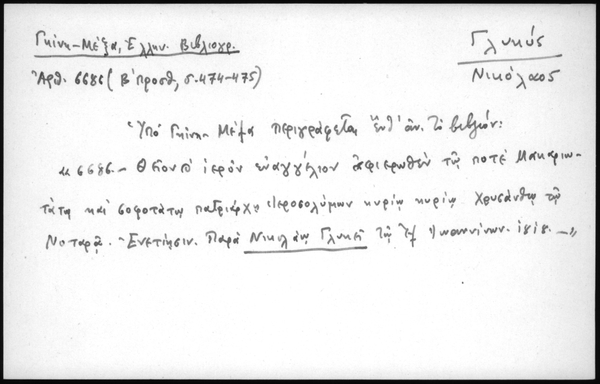 Γκίνη - Μέξα, Ἑλλην. Βιβλιογρ.
Γλυκύς
Νικόλαος
Ἀρθ. 6686 (Β' προσθ, σ. 474-475)
Ὑπό Γκίνη - Μέξα περιγράφεται τὸ βιβλίον:
« 6686. - Θεῖον καὶ ἱερόν εὐαγγέλιον ἀφιερωθέν τῷ ποτέ Μακαριω-
τάτῳ καί σοφοτάτῳ πατριάρχῃ Ἱεροσολύμων κυρίῳ κυρίῳ Χρυσάνθῳ τῷ
Νοταρᾷ. Ἐνετίησιν. Παρά Νικολάῳ Γλυκεῖ τῷ ἐξ Ἰωαννίνων. 1818. - »